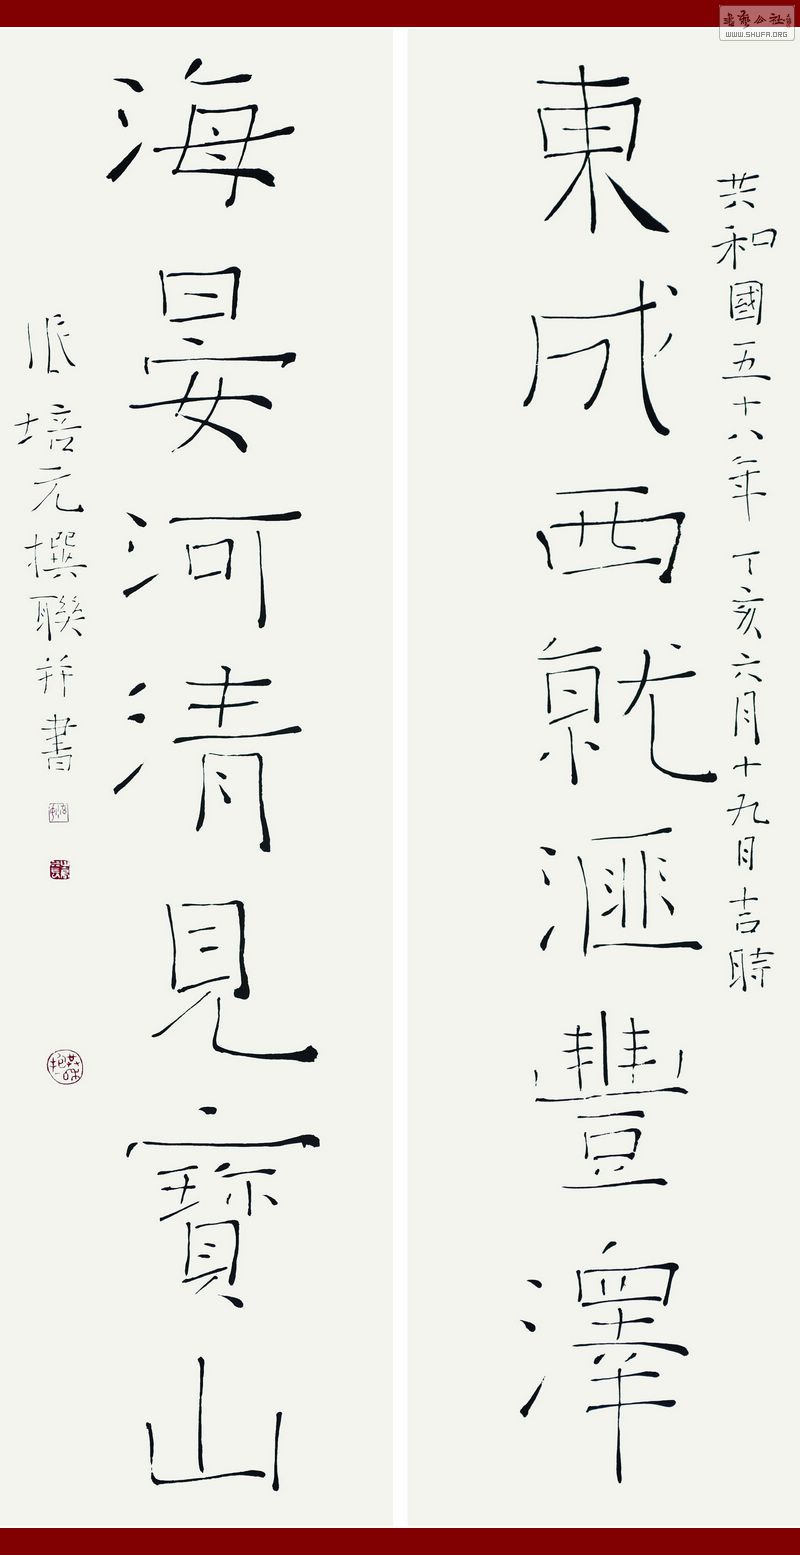 共和國五十八年丁亥六月十九日吉時
東成西就滙豐澤
海晏河清見寶山
張培元撰聯并書
書藝公社
WWW.SHUFA.ORG